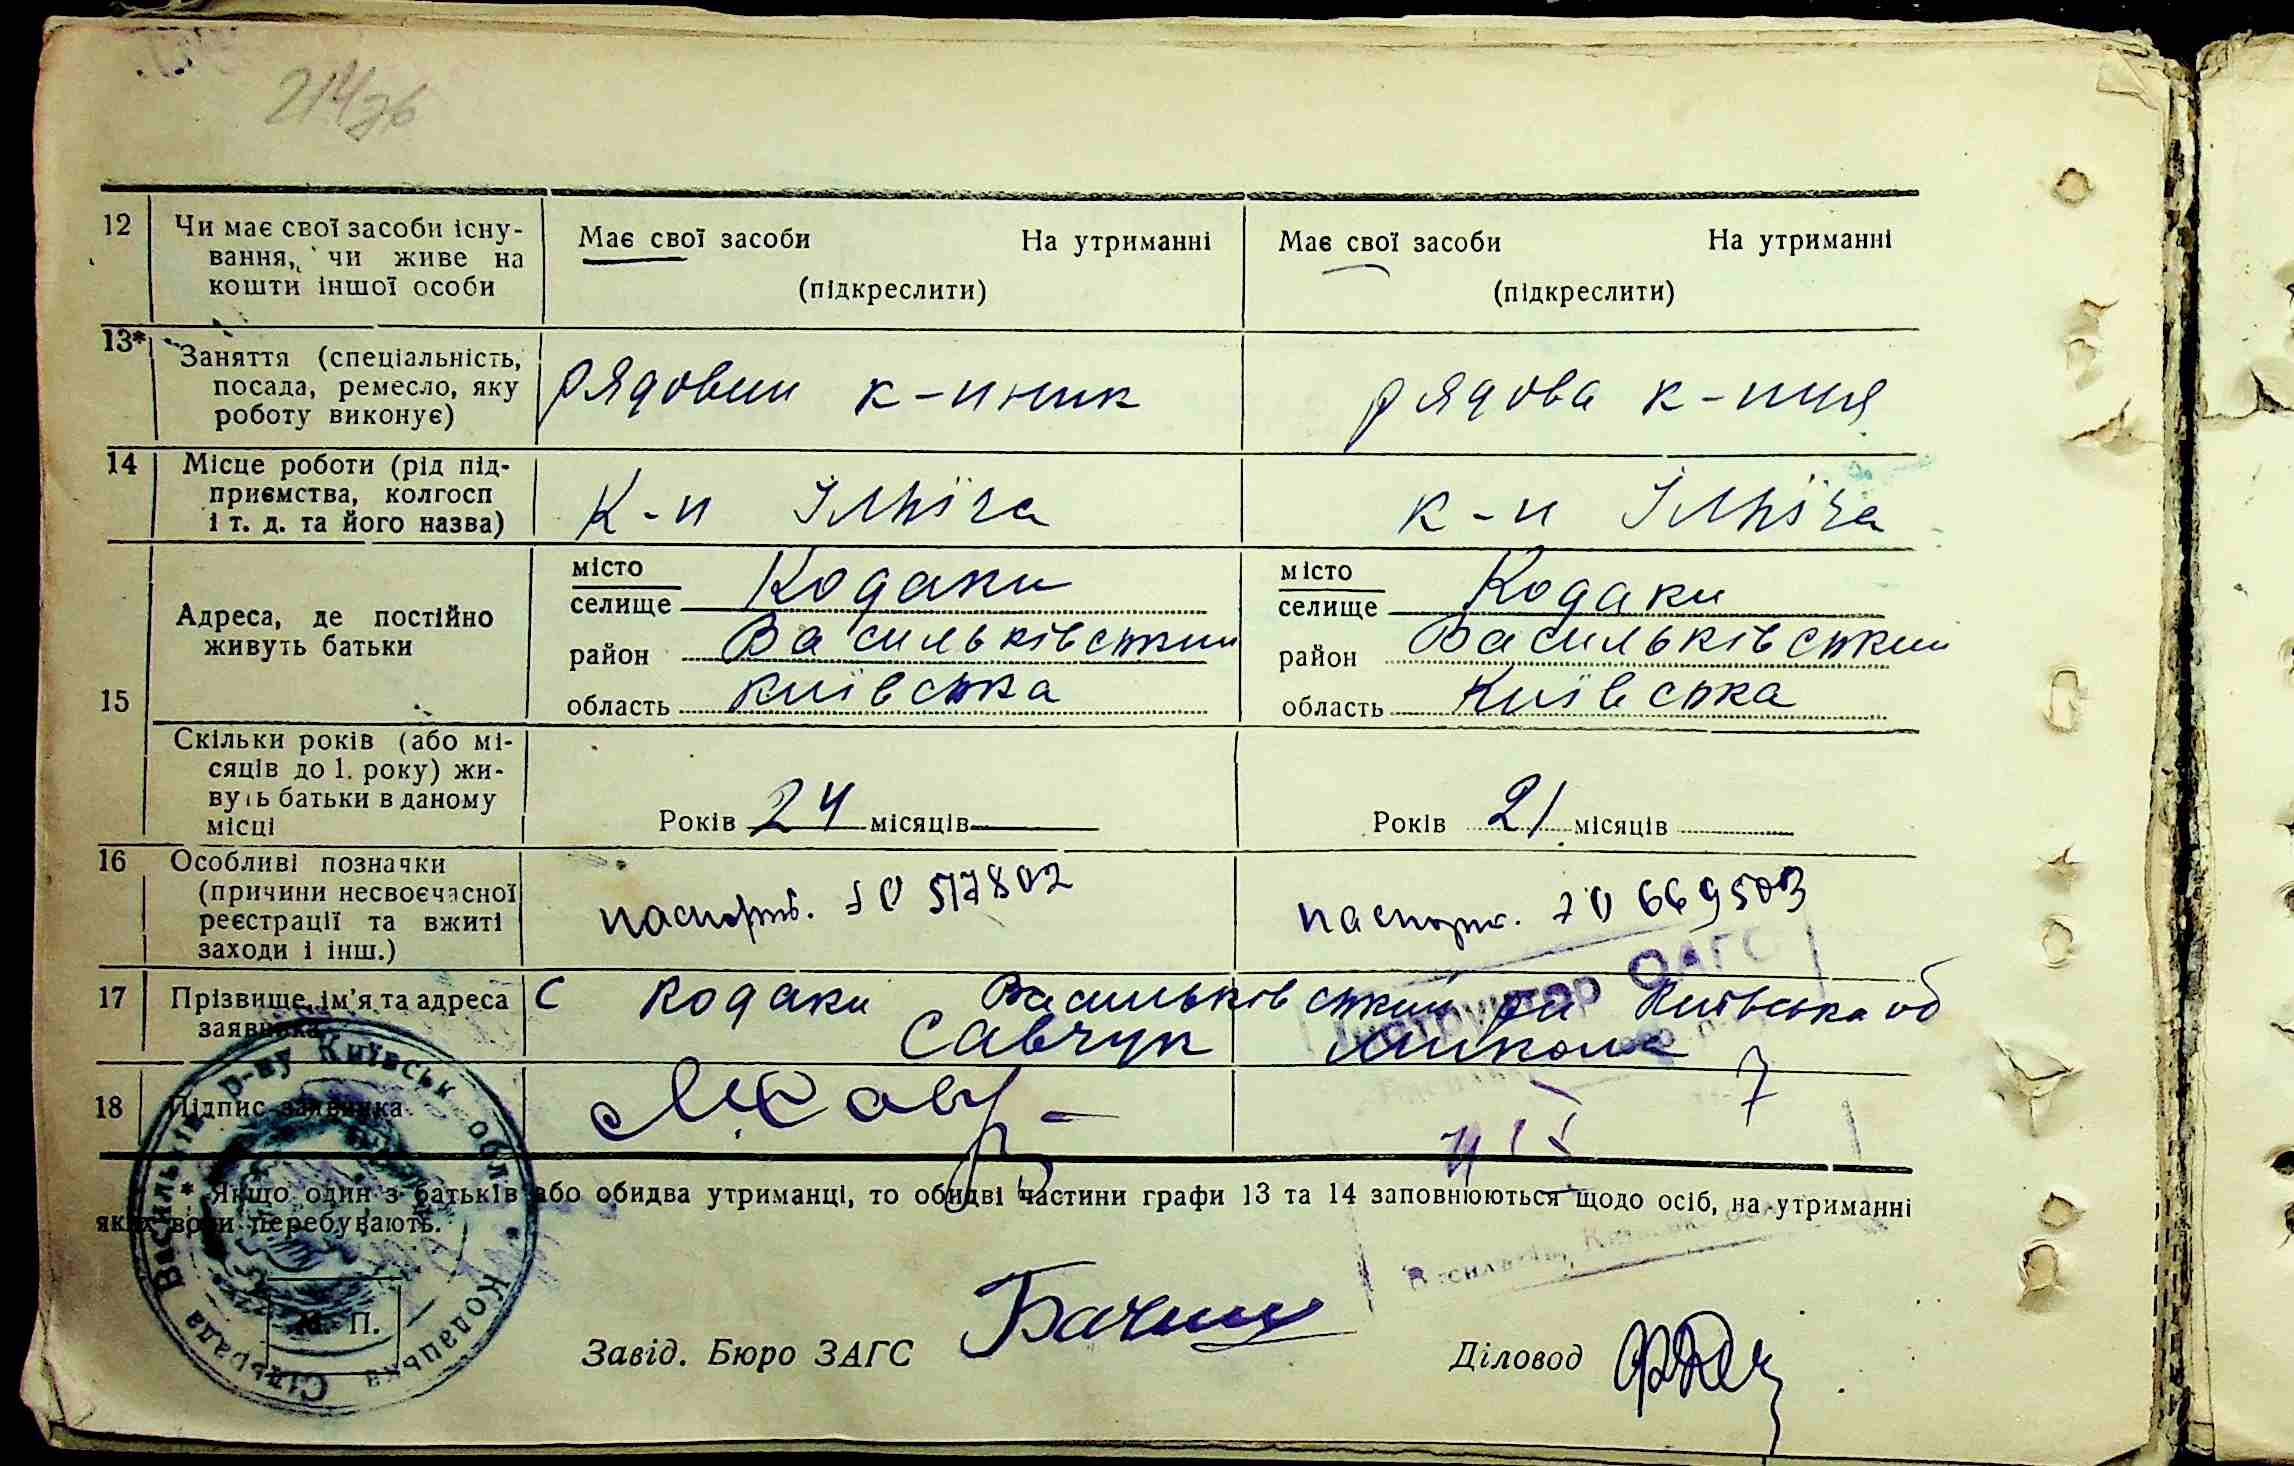 214зв
12 Чи має свої засоби існу-
вання, чи живе на
кошти іншої особи
Має свої засоби На утриманні
(підкреслити)
Має свої засоби На утриманні
(підкреслити)
13* Заняття (спеціальність,
посада, ремесло, яку
роботу виконує)
рядовий к-пник
рядова к-пця
14 Місце роботи (рід під-
приємства, колгосп
і т. д. та його назва)
К-п Ілліча
к-п Ілліча
15 Адреса, де постійно
живуть батьки
місто
селище Кодаки
район Васильківський
область київська
місто
селище Кодаки
район Васильківський
область Київська
Скільки років (або мі-
сяців до 1. року) жи-
вуть батьки в даному
місці
Років 24 місяців
Років 21 місяців
16 Особливі позначки
(причини несвоєчасної
реєстрації та вжиті
заходи і інш.)
паспорт. 517802
паспорт. 669503
17 Прізвище, ім'я та адреса
заявника
с Кодаки Васильківський р-н Київська об
Савчук Микола
18 Підпис заявника
* Якщо один з батьків або обидва утриманці, то обидві частини графи 13 та 14 заповнюються щодо осіб, на утриманні
яких вони перебувають.
Інструктор ЗАГС
Кодацька Сільрада Васильків р-ну Київськ обл
М. П.
Завід. Бюро ЗАГС
Діловод